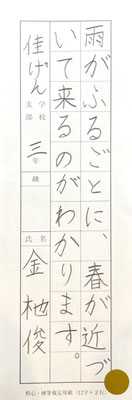 雨がふるごとに、春が近づ
いて来るのがわかります。
支部
学校
佳げん
三年
級
氏名
金 杝俊
初心・硬筆規定用紙(12字×2行)